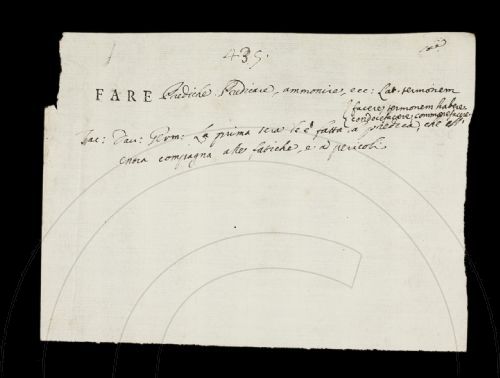 435.
FARE Prediche. Predicare, ammonire, ecc: Lat. sermonem
facere, sermonem habere
concione facere, commonefacere.
Tac: Dav: Germ: La prima sera le è fatta a predica, che ell'
entra compagna alle fatiche, e a pericoli.